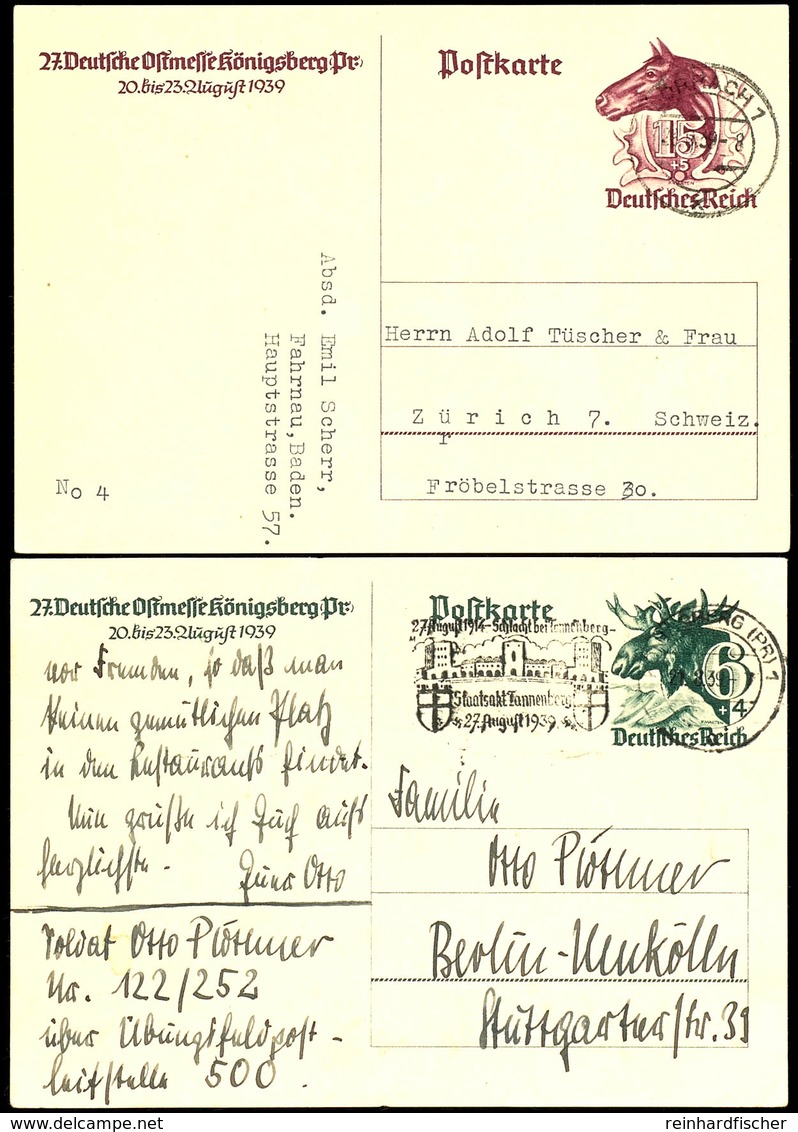 27. Deutsche Ostmesse Königsberg (Pr)
20. bis 23. August 1939
Postkarte
15
+5
Deutsches Reich
Absd. Emil Scherr,
Fahrnau, Baden.
Hauptstrasse 57.
No 4
Herrn Adolf Tüscher & Frau
Zürich 7. Schweiz.
r
Fröbelstrasse 30.
27. Deutsche Ostmesse Königsberg (Pr)
20. bis 23. August 1939
Postkarte
27. August 1914 - Schlacht bei Tannenberg -
Staatsakt Tannenberg
27. August 1939
(PR) 1
6
+4
Deutsches Reich
vor Fremden, so daß man
keinen gemütlichen Platz
in den Restaurants findet.
Nun grüße ich Euch aufs
herzlichste. Euer Otto
Soldat Otto
Nr. 122/252
über Übungsfeldpost-
leitstelle 500.
Familie
Otto
Berlin-Neukölln
Stuttgarterstr. 39
reinhardfischer